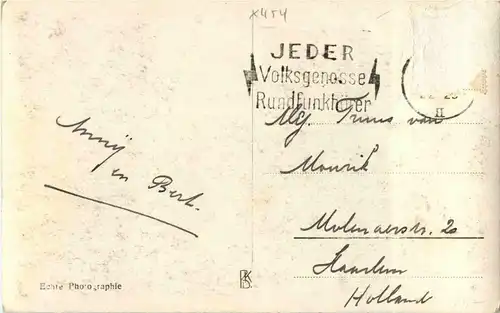 x454
JEDER
Volksgenosse
Rundfunkhörer
II
Mej. Truus van
Mourik
Molenaerstr. 20
Haarlem
Holland
Annij
en Bert.
Echte Photographie